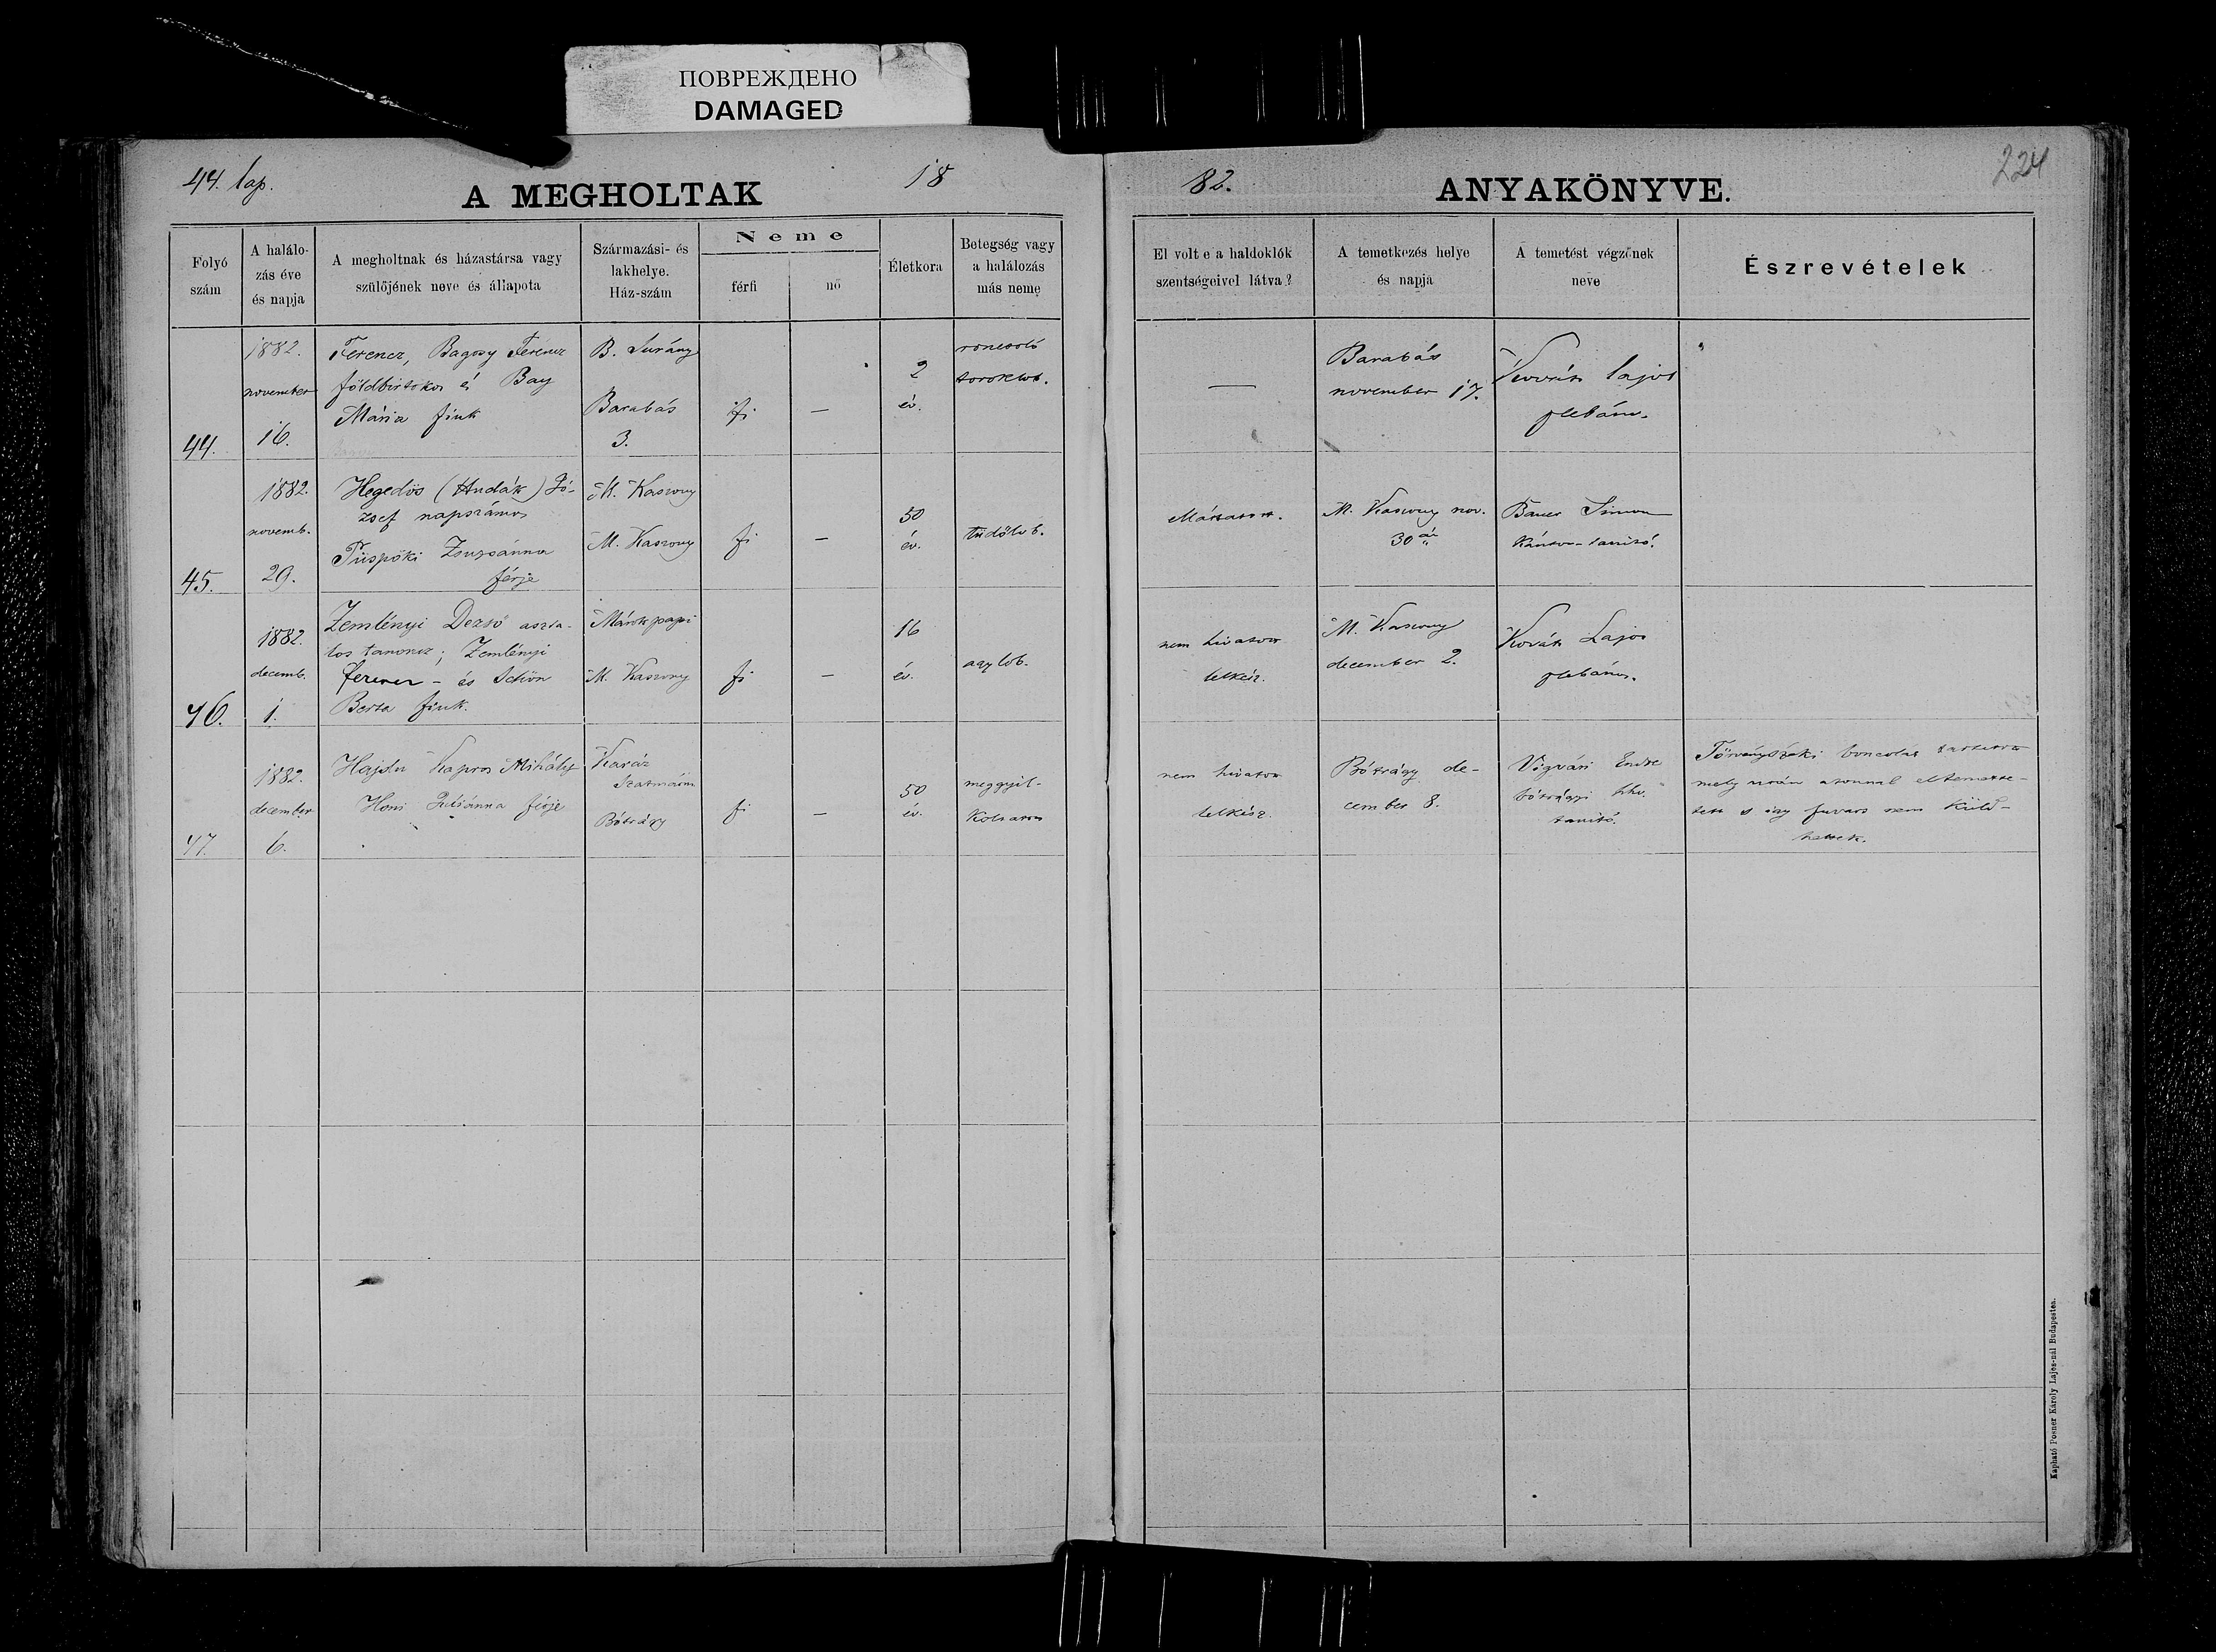 ПОВРЕЖДЕНО
DAMAGED
44. lap.
A MEGHOLTAK
18
82.
ANYAKÖNYVE.
224
Folyó szám
A halálo-
zás éve
és napja
A megholtnak és házastársa vagy
szülőjének neve és állapota
Származási- és
lakhelye.
Ház-szám
Neme
férfi
nő
Életkora
Betegség vagy
a halálozás
más neme
El volt e a haldoklók
szentségeivel látva?
A temetkezés helye
és napja
A temetést végzőnek
neve
Észrevételek
44.
1882.
november
16.
Ferencz, Bagosy Ferencz
földbirtokos és Bay
Mária fiuk
B. Surány
Barabás
3.
fi
—
2
év.
roncsoló
toroklob.
—
Barabás
november 17.
Kovách Lajos
plebános.
45.
1882.
novemb.
29.
Hegedüs (Hudák) Jó-
zsef napszámos
Püspöki Zsuzsánna
férje
M. Kaszony
M. Kaszony
fi
—
50
év.
tüdőlob.
M. Kaszony nov.
30án
Bauer Simon
kántor-tanitó.
46.
1882.
decemb.
1.
Zemlényi Dezső aszta-
los tanoncz; Zemlényi
Ferencz - és Schön
Berta fiuk.
Márokpapi
M. Kaszony
fi
—
16
év.
agylob.
nem hivatott
lelkész.
M. Kaszony
december 2.
Kovách Lajos
plebános.
47.
1882.
december
6.
Hajdu Kapros Mihály
Juliánna férje
Szatmárm.
Bótrágy
fi
—
50
év.
meggyil-
koltatott
nem hivatott
lelkész.
Bótrágy de-
cember 8.
Vigvári Endre
bótrágyi hhv.
tanitó.
Törvényszéki bonczolás tartatott
mely után azonnal eltemette-
tett s igy fuvart nem küld-
hettek.
Kapható Posner Károly Lajos-nál Budapesten.